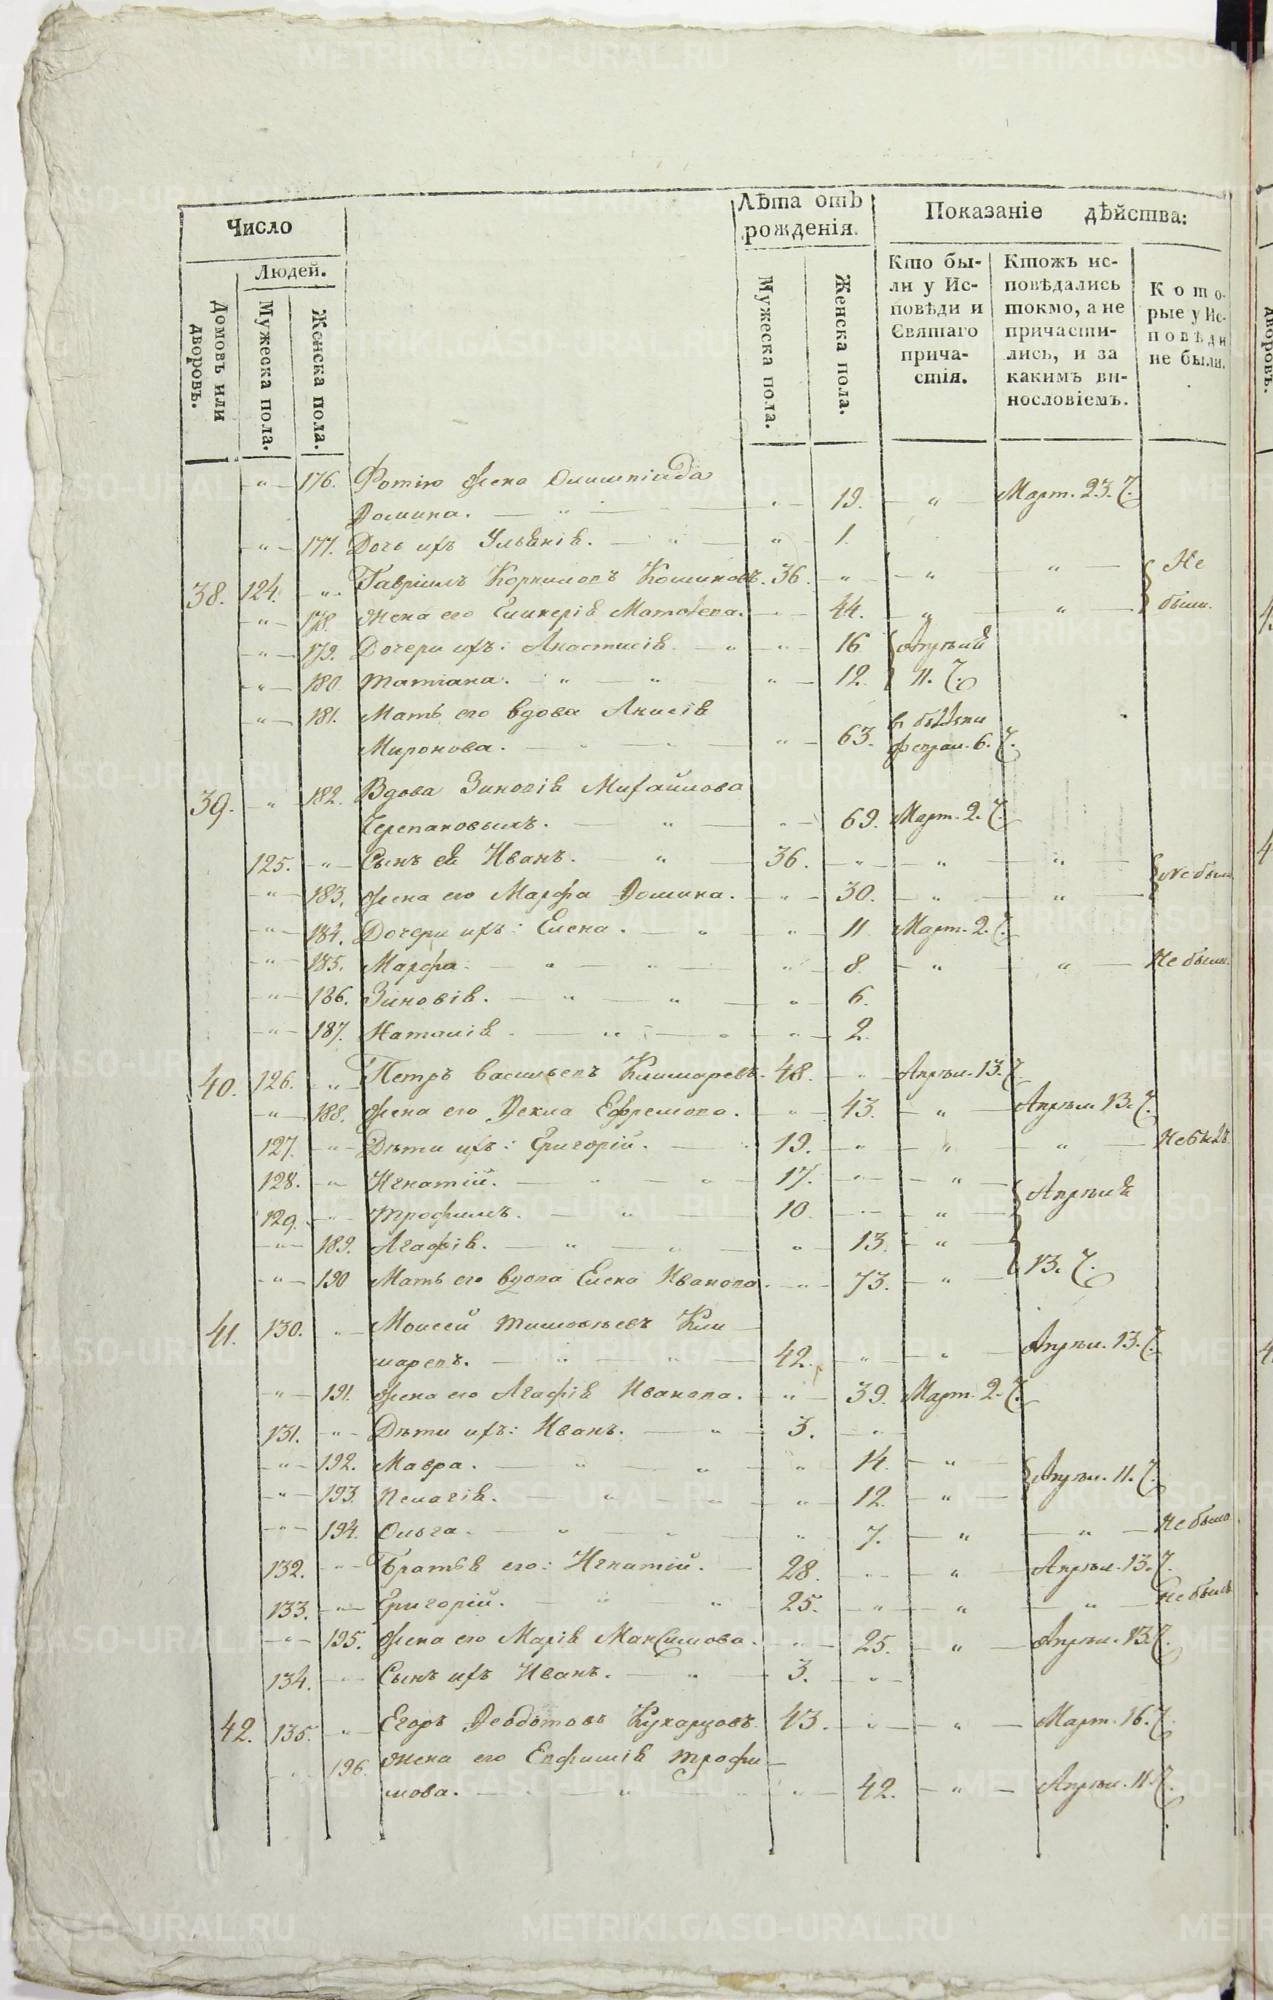 METRIKI.GASO-URAL.RU
Число
Лѣта отъ рожденія.
Показаніе дѣйства:
Людей.
Домовъ или дворовъ.
Мужеска пола.
Женска пола.
Мужеска пола.
Женска пола.
Кто бы-
ли у Ис-
повѣди и
Святаго
прича-
стія.
Ктожъ ис-
повѣдались
токмо, а не
причасти-
лись, и за
какимъ ви-
нословіемъ.
Кото-
рые у Ис-
повѣди
не были.
" 176. Фотію жена Олимпіада
Домина. " 19. " Март. 23.
" 177. Дочь ихъ Ульянія. " 1.
38. 124. " Гавріилъ Корниловъ 36. " " " Не
" 178. Жена его Гликерія Матвѣева. " 44. " " были.
" 179. Дочери ихъ: Анастасія. " 16. Апрѣлія
" 180. Татіана. " 12. 11.
" 181. Мать его вдова Анисія
Миронова. " 63. Феврал. 6.
39. " 182. Вдова Зиновія Михайлова
Черепановыхъ. " 69. Март. 2.
125. " Сынъ ея Иванъ. 36. " " "
" 183. Жена его Марфа Домина. " 30. " " Не были
" 184. Дочери ихъ: Елена. " 11. Март. 2.
" 185. Марфа. " 8. " " Не была.
" 186. Зиновія. " 6.
" 187. Наталія. " 2.
40. 126. " Петръ Васильевъ 48. " Апрѣл. 13.
" 188. Жена его Ѳекла Ефремова. " 43. " Апрѣл. 13.
127. " Дѣти ихъ: Григорій. 19. " " " Не былъ.
128. " Игнатій. 17. " " Апрѣля
129. " Трофимъ. 10. " "
" 189. Агафія. " 13. "
" 190 Мать его вдова Елена Иванова. " 73. " 13.
41. 130. " Моисей Тимофѣевъ
42. " " Апрѣл. 13.
" 191. Жена его Агафія Иванова. " 39. Март. 2.
131. " Дѣти ихъ: Иванъ. 3. "
" 192. Мавра. " 14. " Апрѣл. 11.
" 193. Пелагія. " 12. "
" 194. Ольга. " 7. " " Не была
132. " Братья его: Игнатій. 28. " " Апрѣл. 13.
133. " Григорій. 25. " " " Не былъ
" 195. Жена его Марія Максимова. " 25. " Апрѣл. 13.
134. " Сынъ ихъ Иванъ. 3. "
42. 135. " Егоръ Ѳеодотовъ Кухарцовъ. 43. " " Март. 16.
" 196. Жена его Евфимія Трофи-
мова. " 42. " Апрѣл. 11.